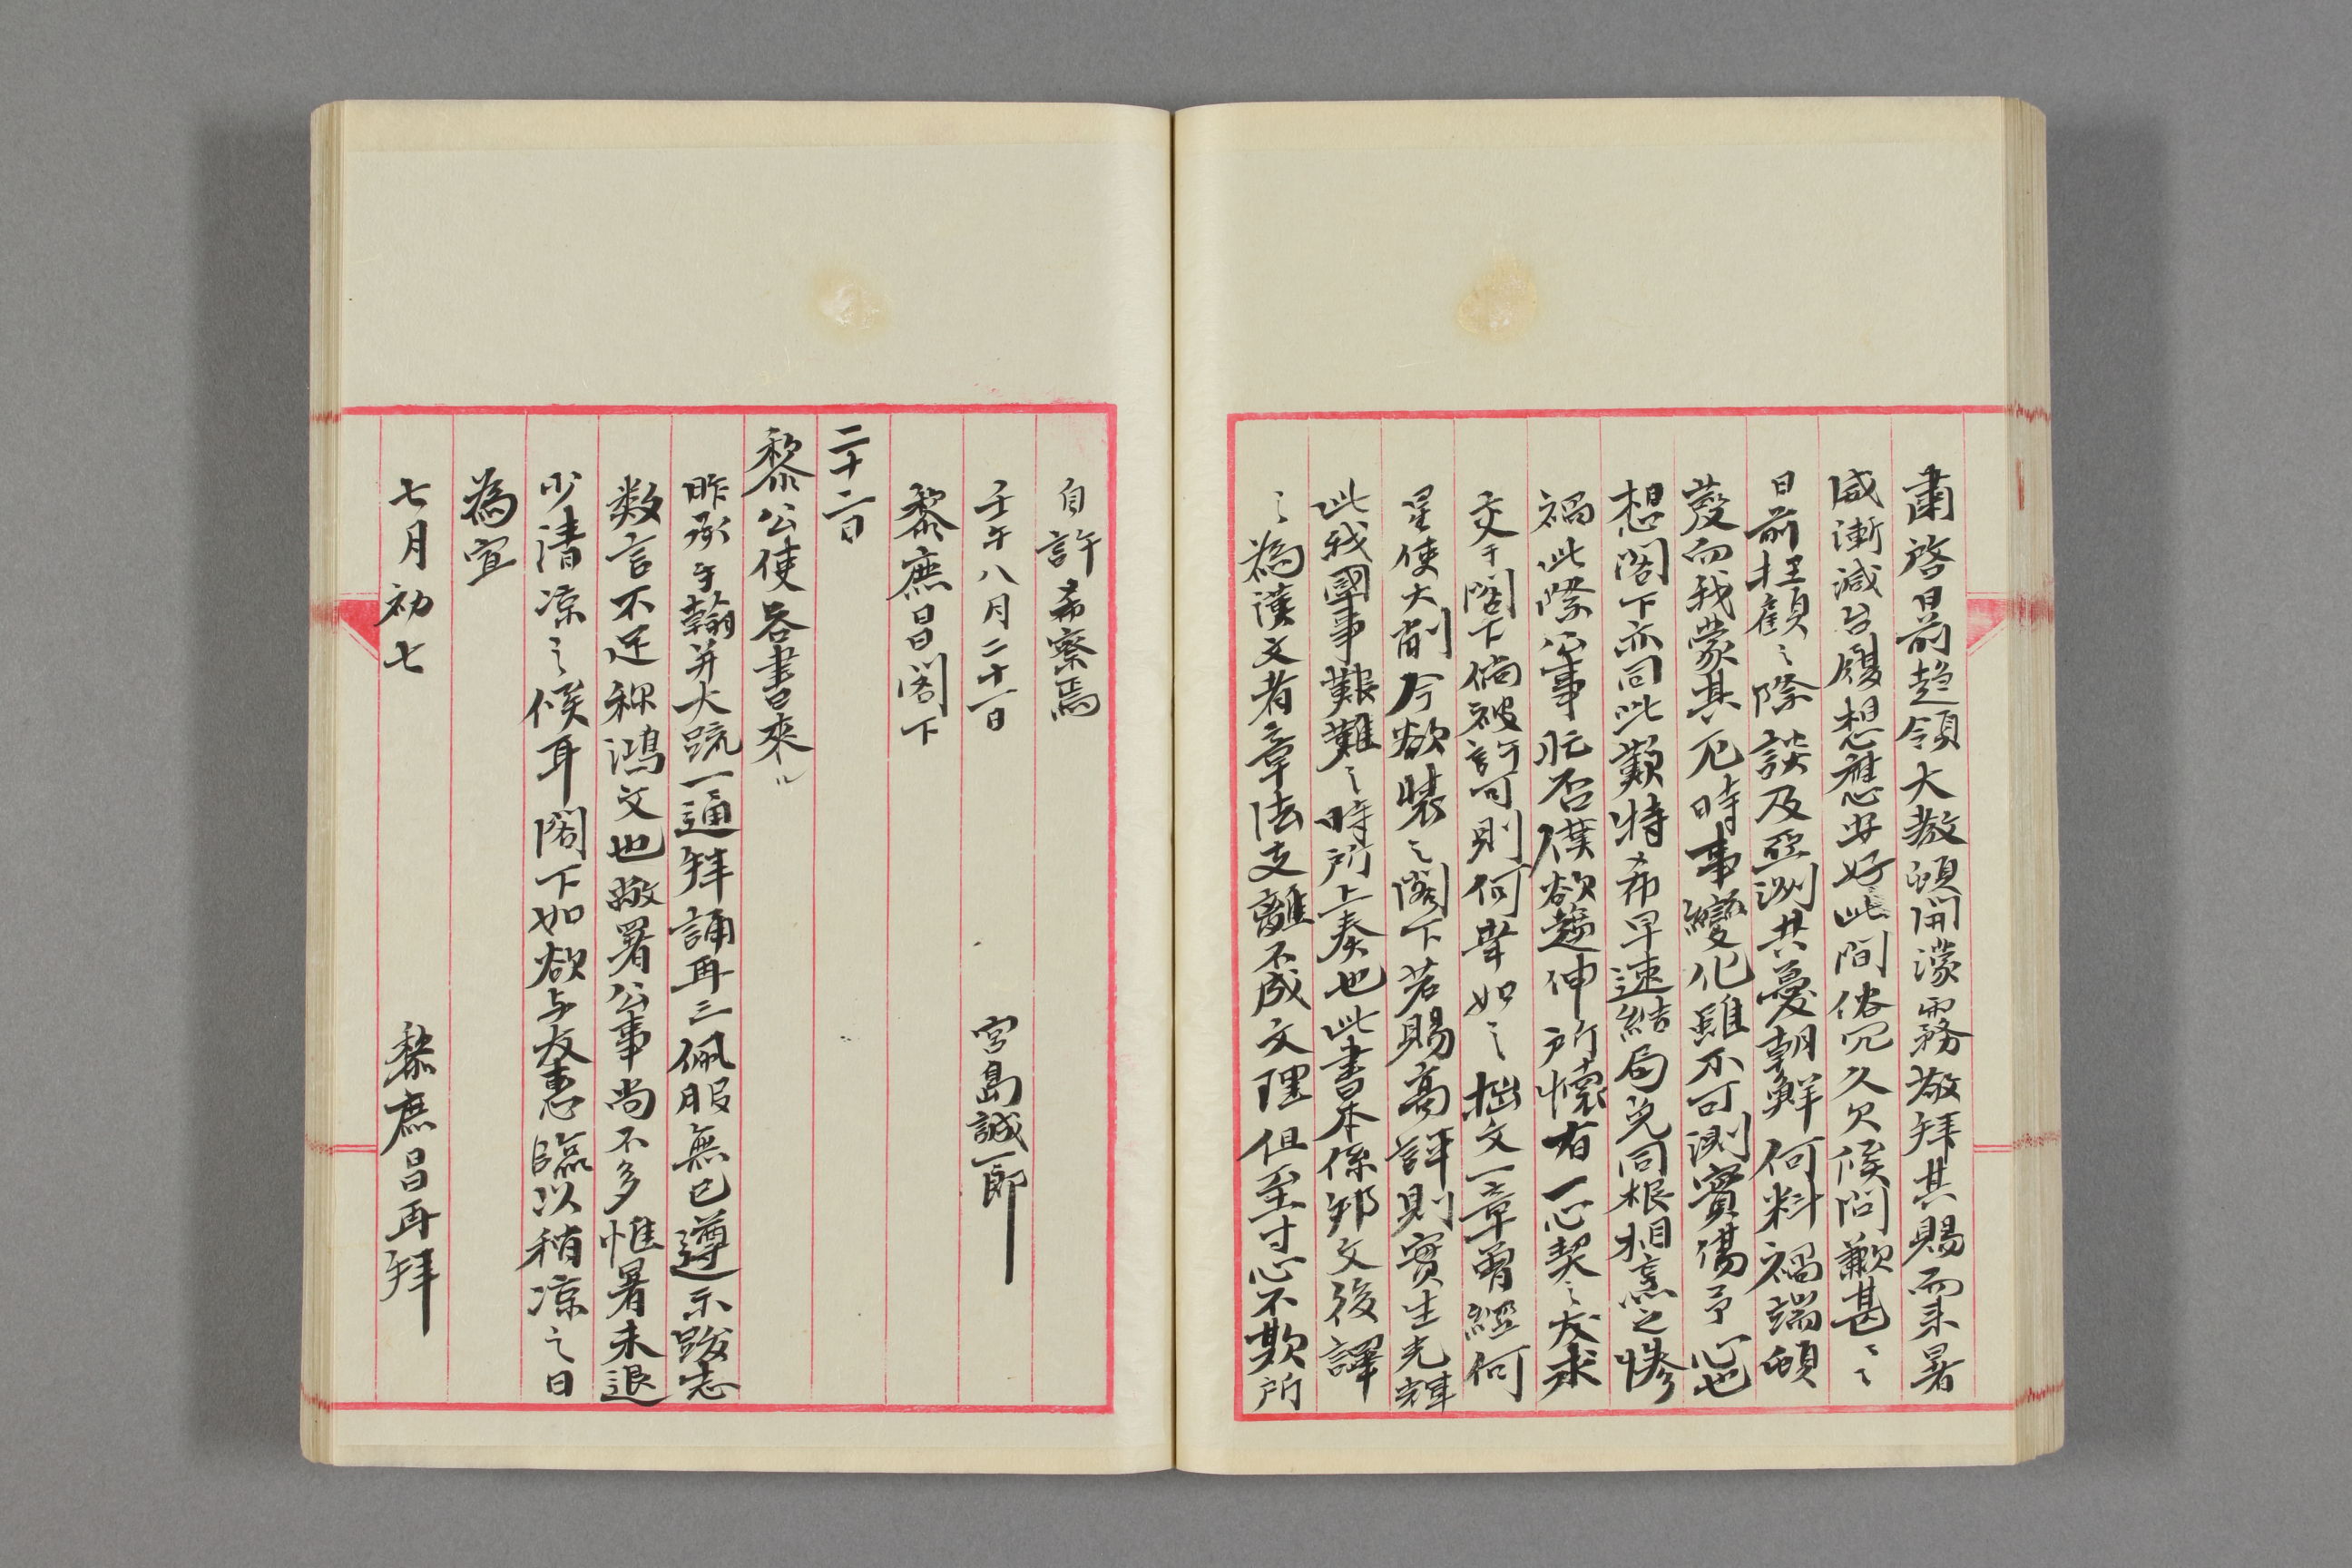 肅啓日前趋領大教頓開濛霧敬拜其賜而来暑
威漸減台履想應安好此間俗冗久欠候問歉甚〻
日前枉顧之際談及亞洲共憂朝鮮何料禍端頓
發而我蒙其厄時事變化雖不可測實傷予心也
想閣下亦同此歎特希早速結局免同根相煮之慘
禍此際公事忙否僕欲趨伸所懷有一心契之友求
交于閣下倘被許可則何幸如之拙文一章曽經何
星使大削今欲裝之閣下若賜高評則實生光輝
此我國事艱難之時所上奏也此書本係邦文後譯
之為漢文者章法支離不成文理但至寸心不欺所
自許希察焉
壬午八月二十一日 宮島誠一郎
黎庶昌閣下
二十二日
黎公使答書来ル
昨承手翰并大疏一通拜誦再三佩服無已遵示跋志
数言不足称鴻文也敝署公事尚不多惟暑未退
少清凉之候耳閣下如欲与友惠臨以稍凉之日
為宜
七月初七 黎庶昌再拜